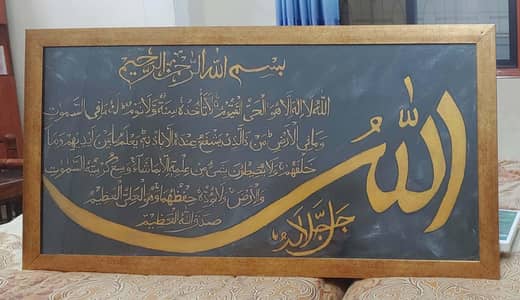 بسم الله الرحمن الرحيم
الله لا إله إلا هو الحي القيوم لا تأخذه سنة ولا نوم له ما في السموت
وما في الأرض من ذا الذي يشفع عنده إلا بإذنه يعلم ما بين أيديهم وما
خلفهم ولا يحيطون بشئ من علمه إلا بما شاء وسع كرسيه السموت
والأرض ولا يؤده حفظهما وهو العلي العظيم
صدق الله العظيم
الله
جل جلاله